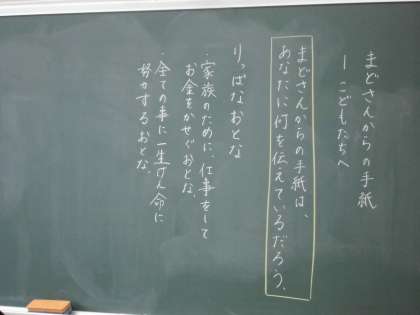 まどさんからの手紙
ーこどもたちへ
まどさんからの手紙は、
あなたに何を伝えているだろう。
りっぱなおとな
・家族のために、仕事をして
お金をかせぐおとな。
・全ての事に一生けん命に
努力するおとな。